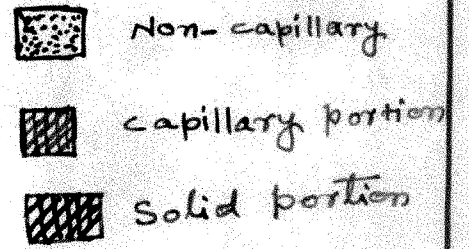 Non-capillary
capillary portion
Solid portion